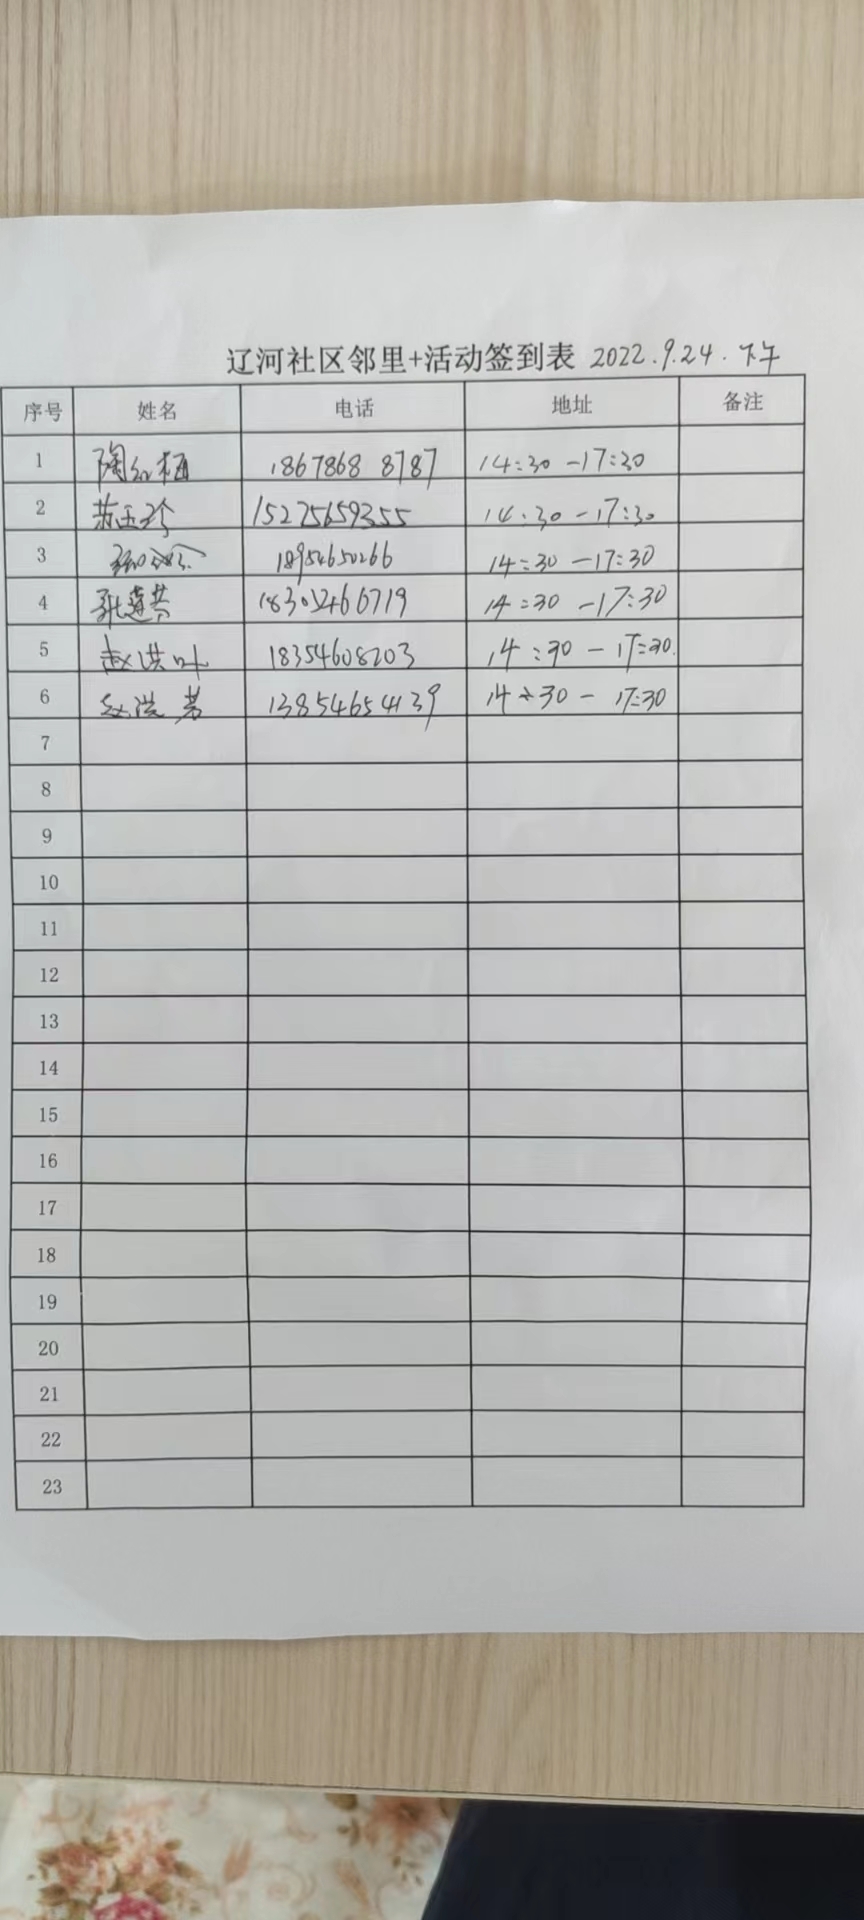 辽河社区邻里+活动签到表 2022.9.24.下午
序号 姓名 电话 地址 备注
1 陶红梅 18678688787 14:30-17:30
2 苏玉珍 15275659355 14:30-17:30
3 18954650266 14:30-17:30
4 张莲芬 14:30-17:30
5 赵洪叶 18354608203 14:30-17:30.
6 赵洪芳 13854654139 14:30-17:30
7
8
9
10
11
12
13
14
15
16
17
18
19
20
21
22
23